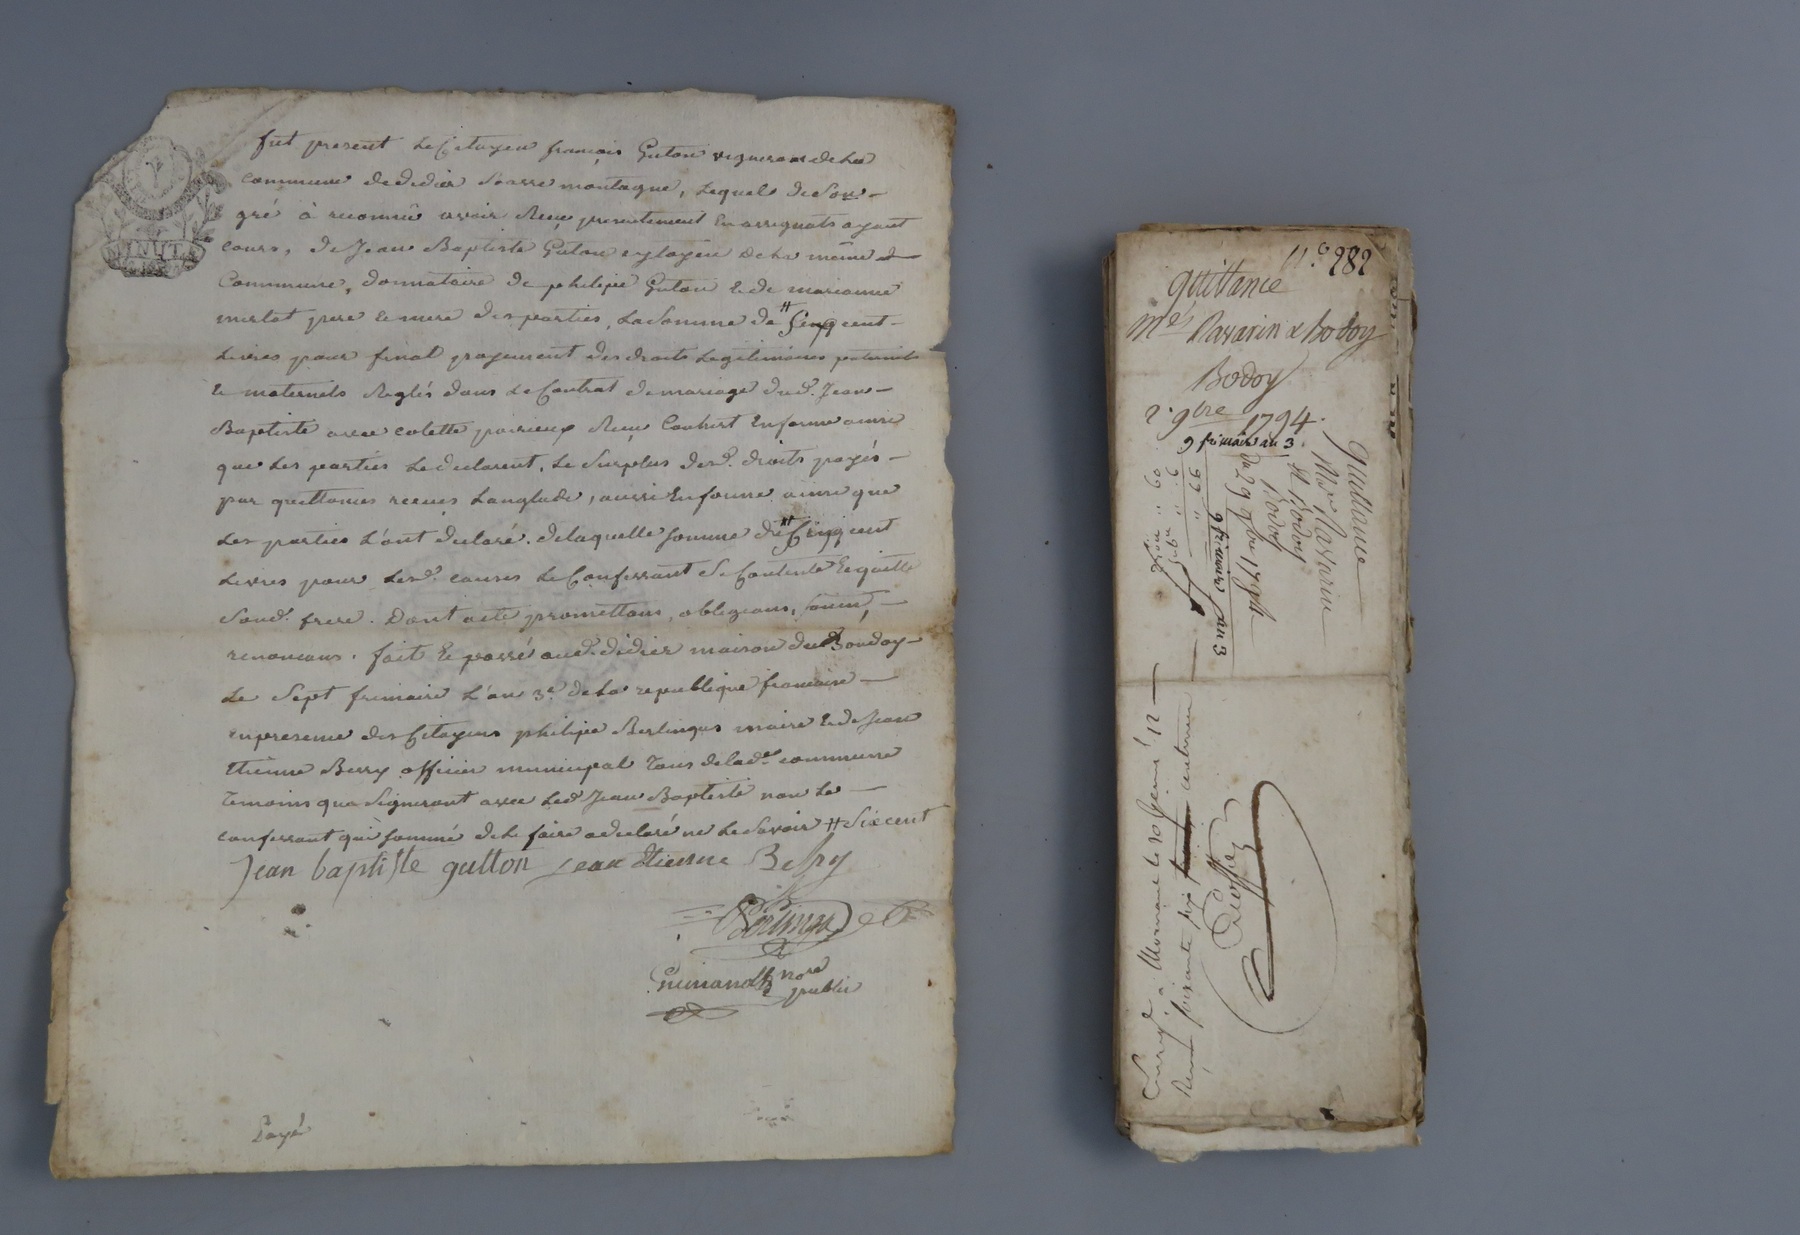 MINUTE
fut present Le Citoyen françois Guton vigneron de La
commune de didier Sousremontagne, Lequel de Son
gré à reconnû avoir Reçu presentement En assignats ayant
cours, de Jean Baptiste Guton de La même
Commune, donnataire de philipe Guton & de marianne
merlat pere & mere des parties, La Somme de # Cinq cent
Livres pour final payement des droits Legitimaires paternels
& maternels Reglés dans Le Contrat de mariage dud. Jean
Baptiste avec colette Reçu Coubert En forme ainsi
que Les parties Le declarent, Le Surplus desd. droits payés
par quittances reçues Langlade, aussi En forme ainsi que
Les parties L'ont declaré. de laquelle Somme de # Cinq cent
Livres pour Lesd. causes Le Confessant Se Contente & quitte
Sond. frere. Dont acte promettans, obligeans, Soum.,
renonceans. fait & passé aud. didier maison du Boudoy
Le Sept frimaire L'an 3e de La republique francaise
en presence des Citoyens philipe Berlingas maire & de Jean
Etienne Bessy officier municipal Tous de lad.e commune
Temoins qui Signeront avec Led Jean Baptiste non Le
confessant qui Sommé de Le faire a declaré ne Le Savoir # Six cent
Jean baptiste gutton jean Etienne Bessy
Grimand nore
public
Payé
n.o 282
quittance
Mes Ravarin & bodoy
Bodoy
2. 9bre 1794.
9 frimaire an 3
quittance
Mre Ravarin
& Bodoy
Bodoy
Du 29 9bre 1794
9 frimaire an 3
99 "
9 "
60 "
Enregé à Mornant le 20 12
Reçu soixante six centimes